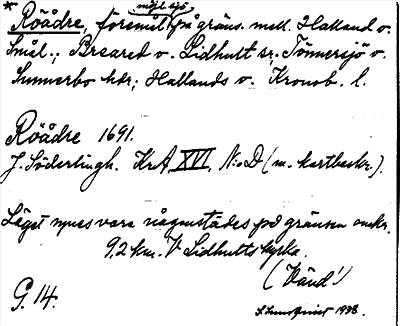 möjl. sjö,
* Röådre, försmål. på gräns. mell. Halland o.
Smål.; Breared o. Lidhult sr; Tönnersjö o.
Sunnerbo hdr; Hallands o. Kronob. l.
Röådre 1691.
J. Söderlingh. KrA XVI, N:o D (m. kartbeskr.).
Läget synes vara någonstädes på gränsen omkr.
9,2 km. V Lidhults kyrka.
(Vänd!)
G. 14.
1938.